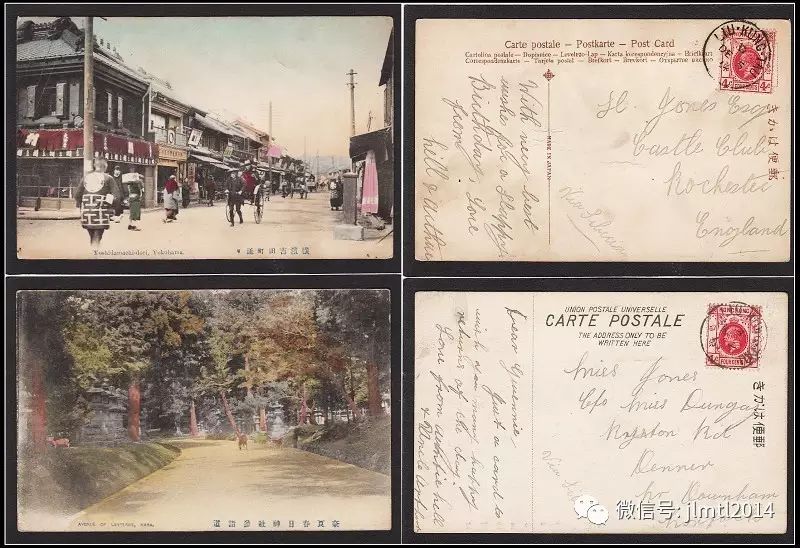 Yoshidamachi-dori, Yokohama.
横濱吉田町通
Carte postale – Postkarte – Post Card
Cartolina postale – Dopisnice – Levelező-Lap – Karta korespondencyjna – Dopisnica
Correspondenzkarte – Tarjeta postal – Briefkort – Brevkort – Открытое письмо
With very best
wishes for a Happy
Birthday. Love
from
MADE IN JAPAN
LIU-KUNG-TAU
きかは便郵
Jones Esq
Castle Club
Rochester
England
AVENUE OF LANTERNS, NARA.
奈良春日神社參詣道
UNION POSTALE UNIVERSELLE
CARTE POSTALE
THE ADDRESS ONLY TO BE
WRITTEN HERE
HONG KONG
きかは便郵
Dear Queenie
Just a card to
wish you many happy
returns of the day.
Love from Auntie hill
Miss Jones
c/o Miss Dungay
Denver
nr Downham
微信号: jlmtl2014